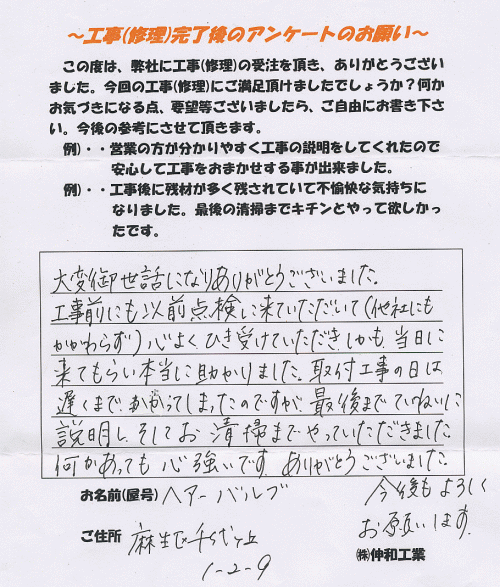 ～工事(修理)完了後のアンケートのお願い～
この度は、弊社に工事(修理)の受注を頂き、ありがとうござい
ました。今回の工事(修理)にご満足頂けましたでしょうか？何か
お気づきになる点、要望等ございましたら、ご自由にお書き下さ
い。今後の参考にさせて頂きます。
例)・・営業の方が分かりやすく工事の説明をしてくれたので
安心して工事をおまかせする事が出来ました。
例)・・工事後に残材が多く残されていて不愉快な気持ちに
なりました。最後の清掃までキチンとやって欲しかっ
たです。
大変御世話になりありがとうございました。
工事前にも以前点検に来ていただいて(他社にも
かかわらず)心よくひき受けていただき、しかも、当日に
来てもらい本当に助かりました。取付工事の日は
遅くまで、かかってしまったのですが、最後までていねいに
説明し、そしてお清掃までやっていただきました。
何かあっても心強いです。ありがとうございました。
お名前(屋号) ヘアーバルブ
今後もよろしく
お願いします。
ご住所 麻生区千代ヶ丘
1-2-9
㈱伸和工業